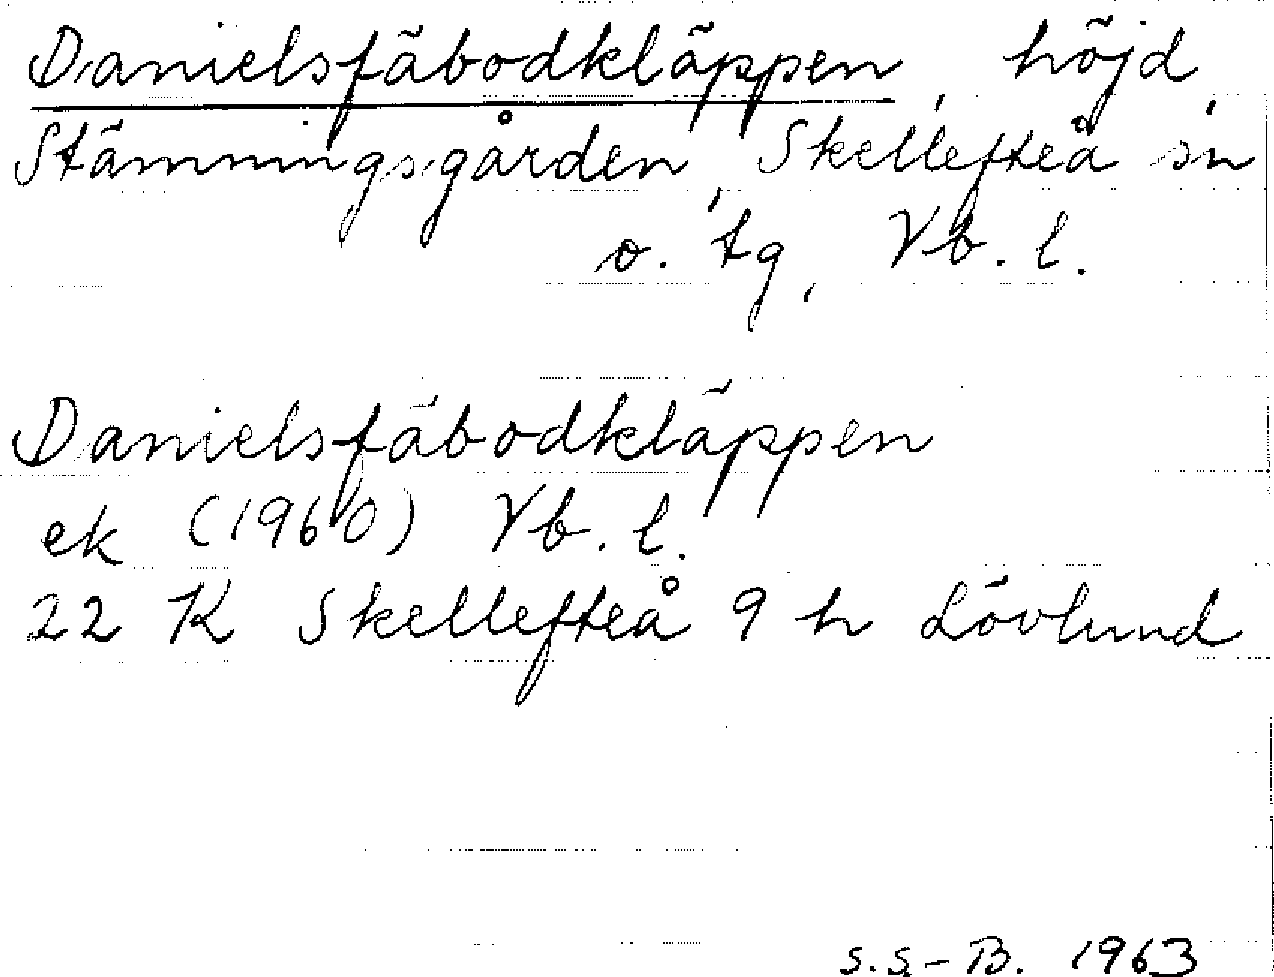 Danielsfäbodkläppen, höjd,
Stämningsgården, Skellefteå sn
o. tg, Vb. l.
Danielsfäbodkläppen
ek (1960) Vb. l.
22 K Skellefteå 9 h Lövlund
S.S-B. 1963